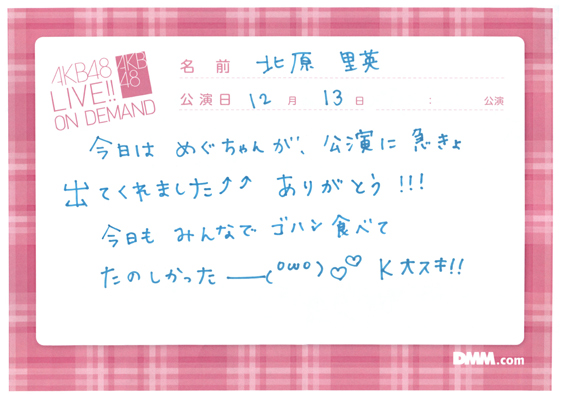 AKB48
LIVE!!
ON DEMAND
AKB
48
名前 北原 里英
公演日 12月 13日 : 公演
今日は めぐちゃんが、公演に 急きょ
出てくれました↑↑ ありがとう !!!
今日も みんなで ゴハン食べて
たのしかった ――(°ωo)♡♡ K大スキ!!
DMM.com